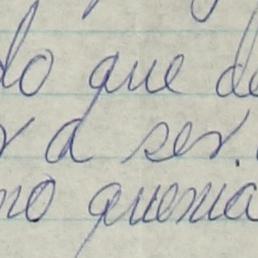 do que de
r a ser.
mo queria